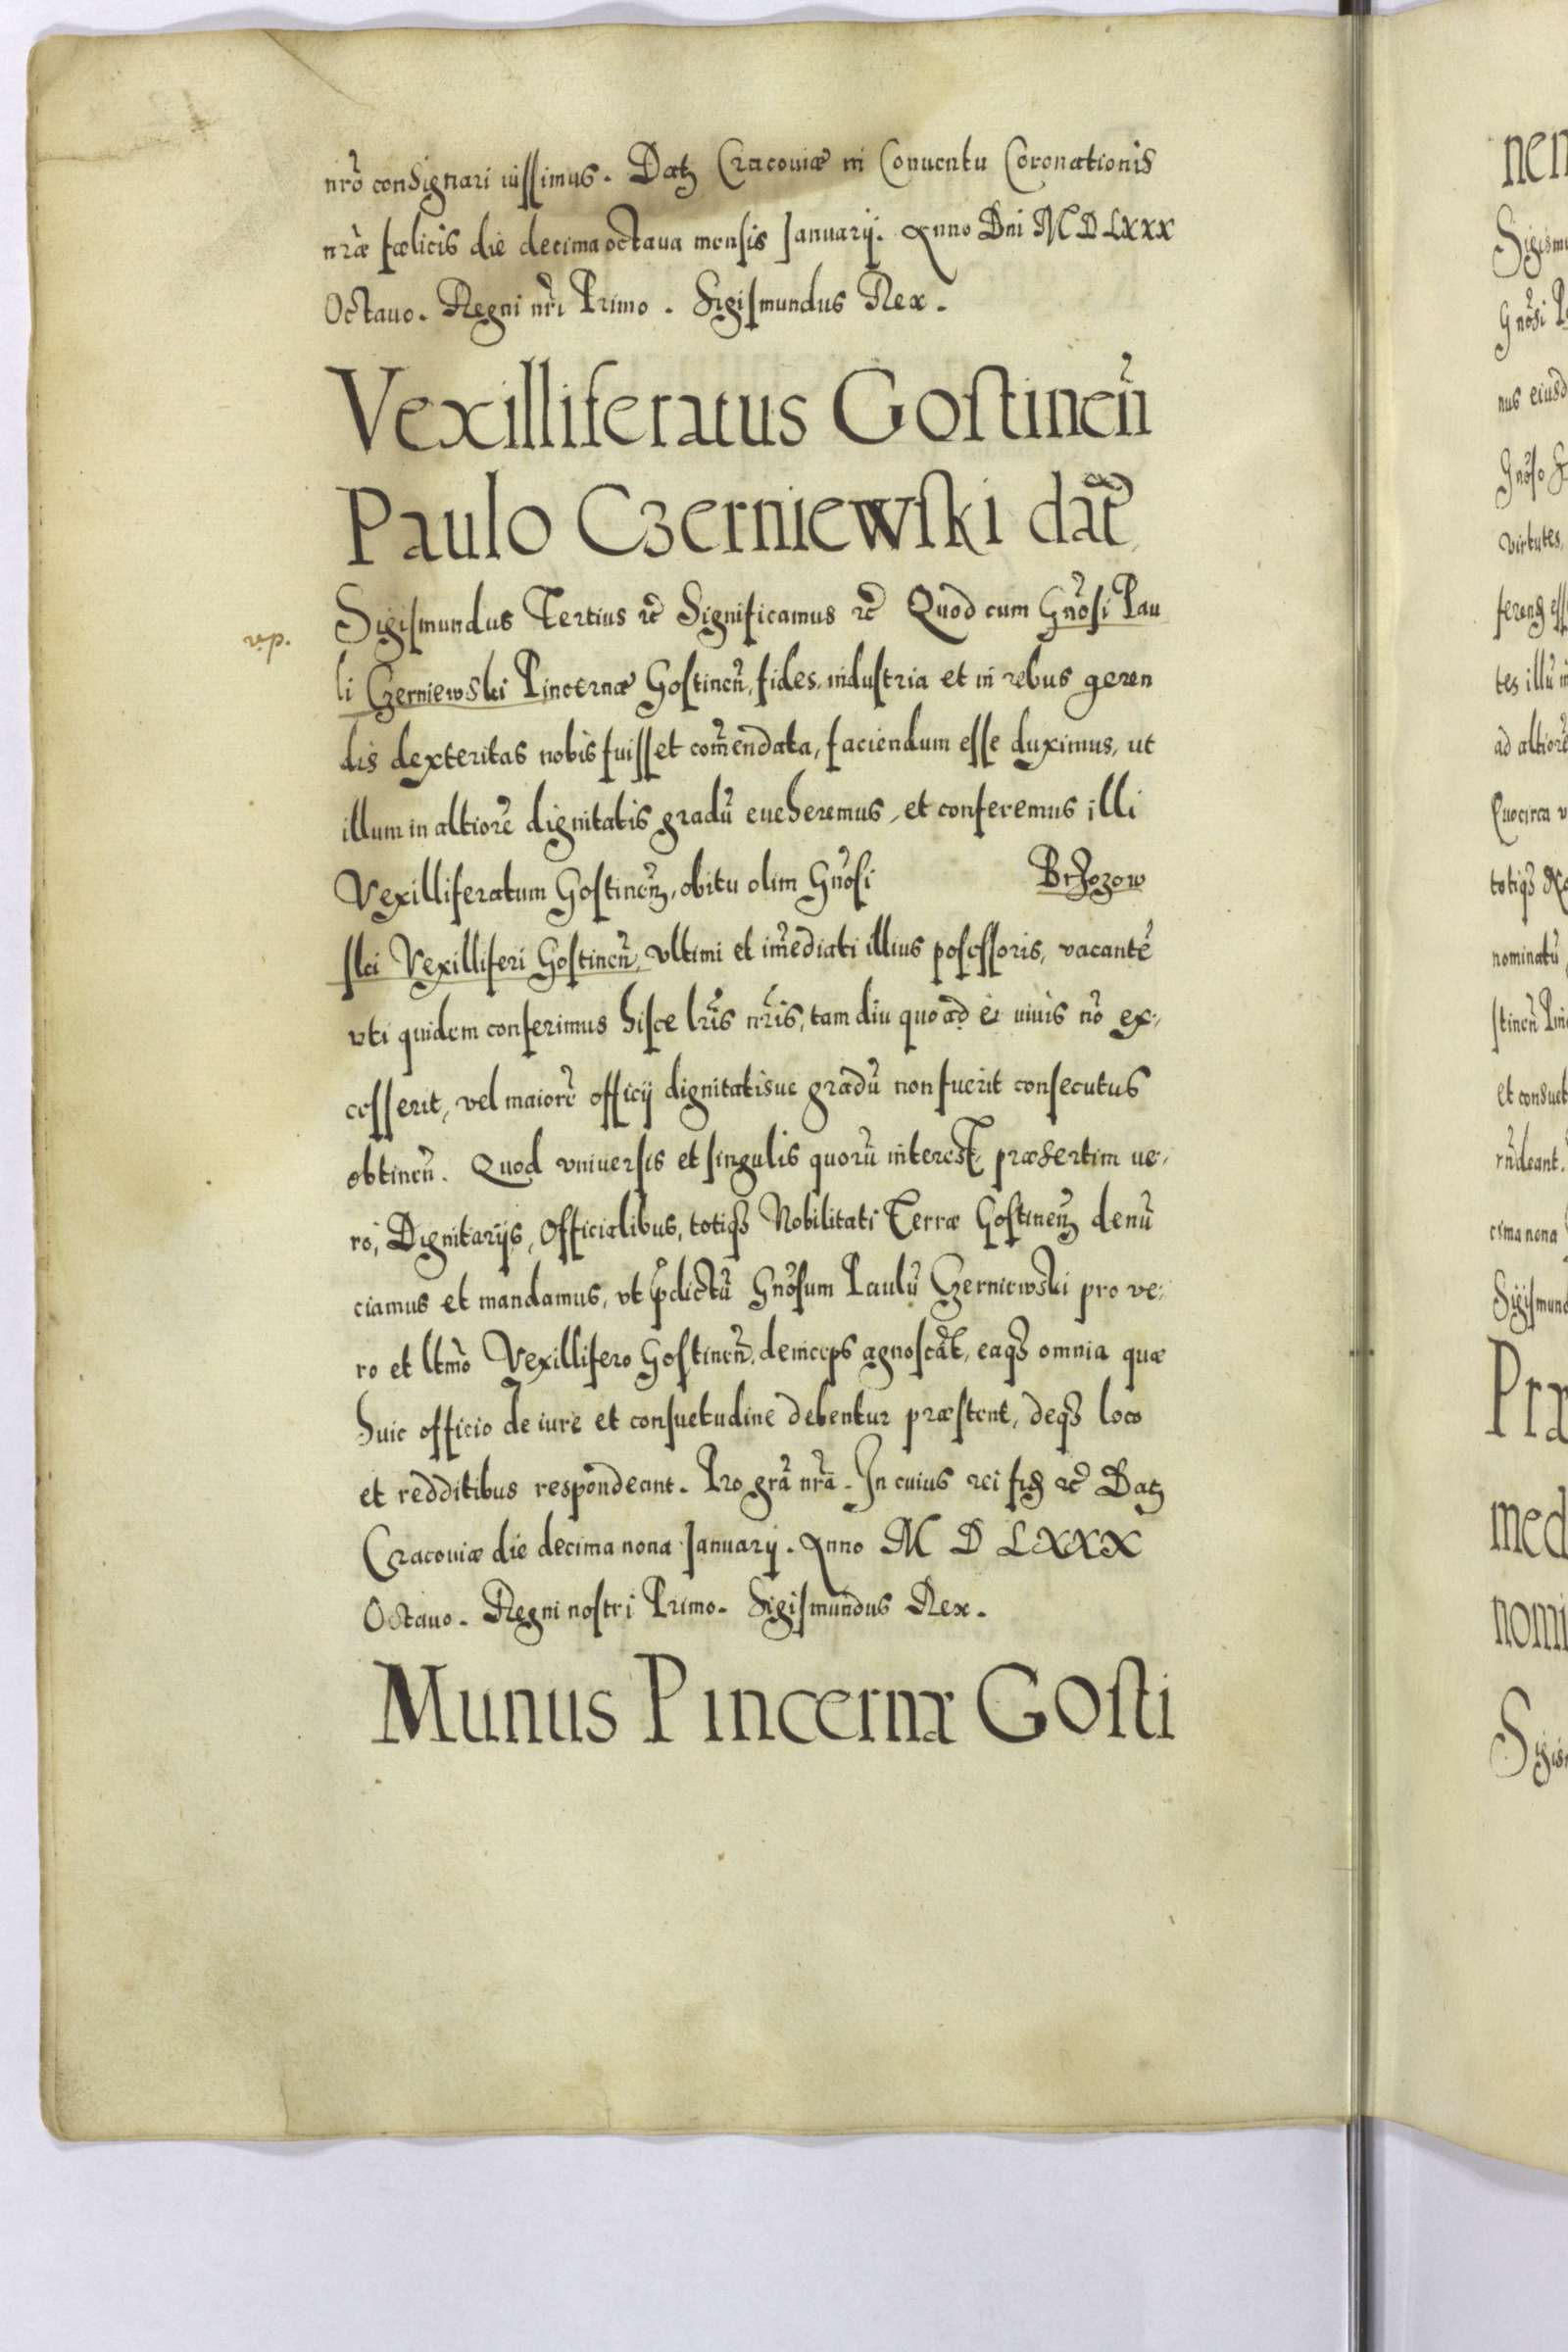 nrõ consignari iussimus. Datȝ Cracouiæ in Conuentu Coronationis
nrãe fœlicis die decima octaua mensis Januarij. Anno Dni MDLXXX
Octauo. Regni nrĩ Primo. Sigismundus Rex.
Vexilliferatus Gostineñ
Paulo Czerniewski dat̃
Sigismundus Tertius &c̃ Significamus &c̃ Quod cum Gnõsi Pau
li Czerniewski Pincernæ Gostineñ, fides, industria et in rebus geren
dis dexteritas nobis fuisset com̃endata, faciendum esse duximus, ut
illum in altiorẽ dignitatis gradũ eueheremus, et conferemus illi
Vexilliferatum Gostineñ, obitu olim Gnõsi Brzozow
ski Vexilliferi Gostineñ, vltimi et im̃ediati illius posessoris, vacantẽ
vti quidem conferimus hisce lrĩs nrĩs, tam diu quo ad è viuis nõ ex-
cesserit, vel maiorẽ officij dignitatisue gradũ non fuerit consecutus
obtineñ. Quod vniuersis et singulis quorũ interest, præsertim ue-
ro, Dignitarijs, Officialibus, totiqȝ Nobilitati Terræ Gostineñ denũ
ciamus et mandamus, vt p̃dictũ Gnõsum Paulũ Czerniewski pro ve-
ro et ltmõ Vexillifero Gostineñ, deinceps agnoscãt, eaqȝ omnia quæ
huic officio de iure et consuetudine debentur præstent, deqȝ loco
et redditibus respondeant. Pro grã nrã. In cuius rei fiđ &c̃ Datȝ
Cracouiæ die decima nona Januarij. Anno M D LXXX
Octauo. Regni nostri Primo. Sigismundus Rex.
Munus Pincernæ Gosti